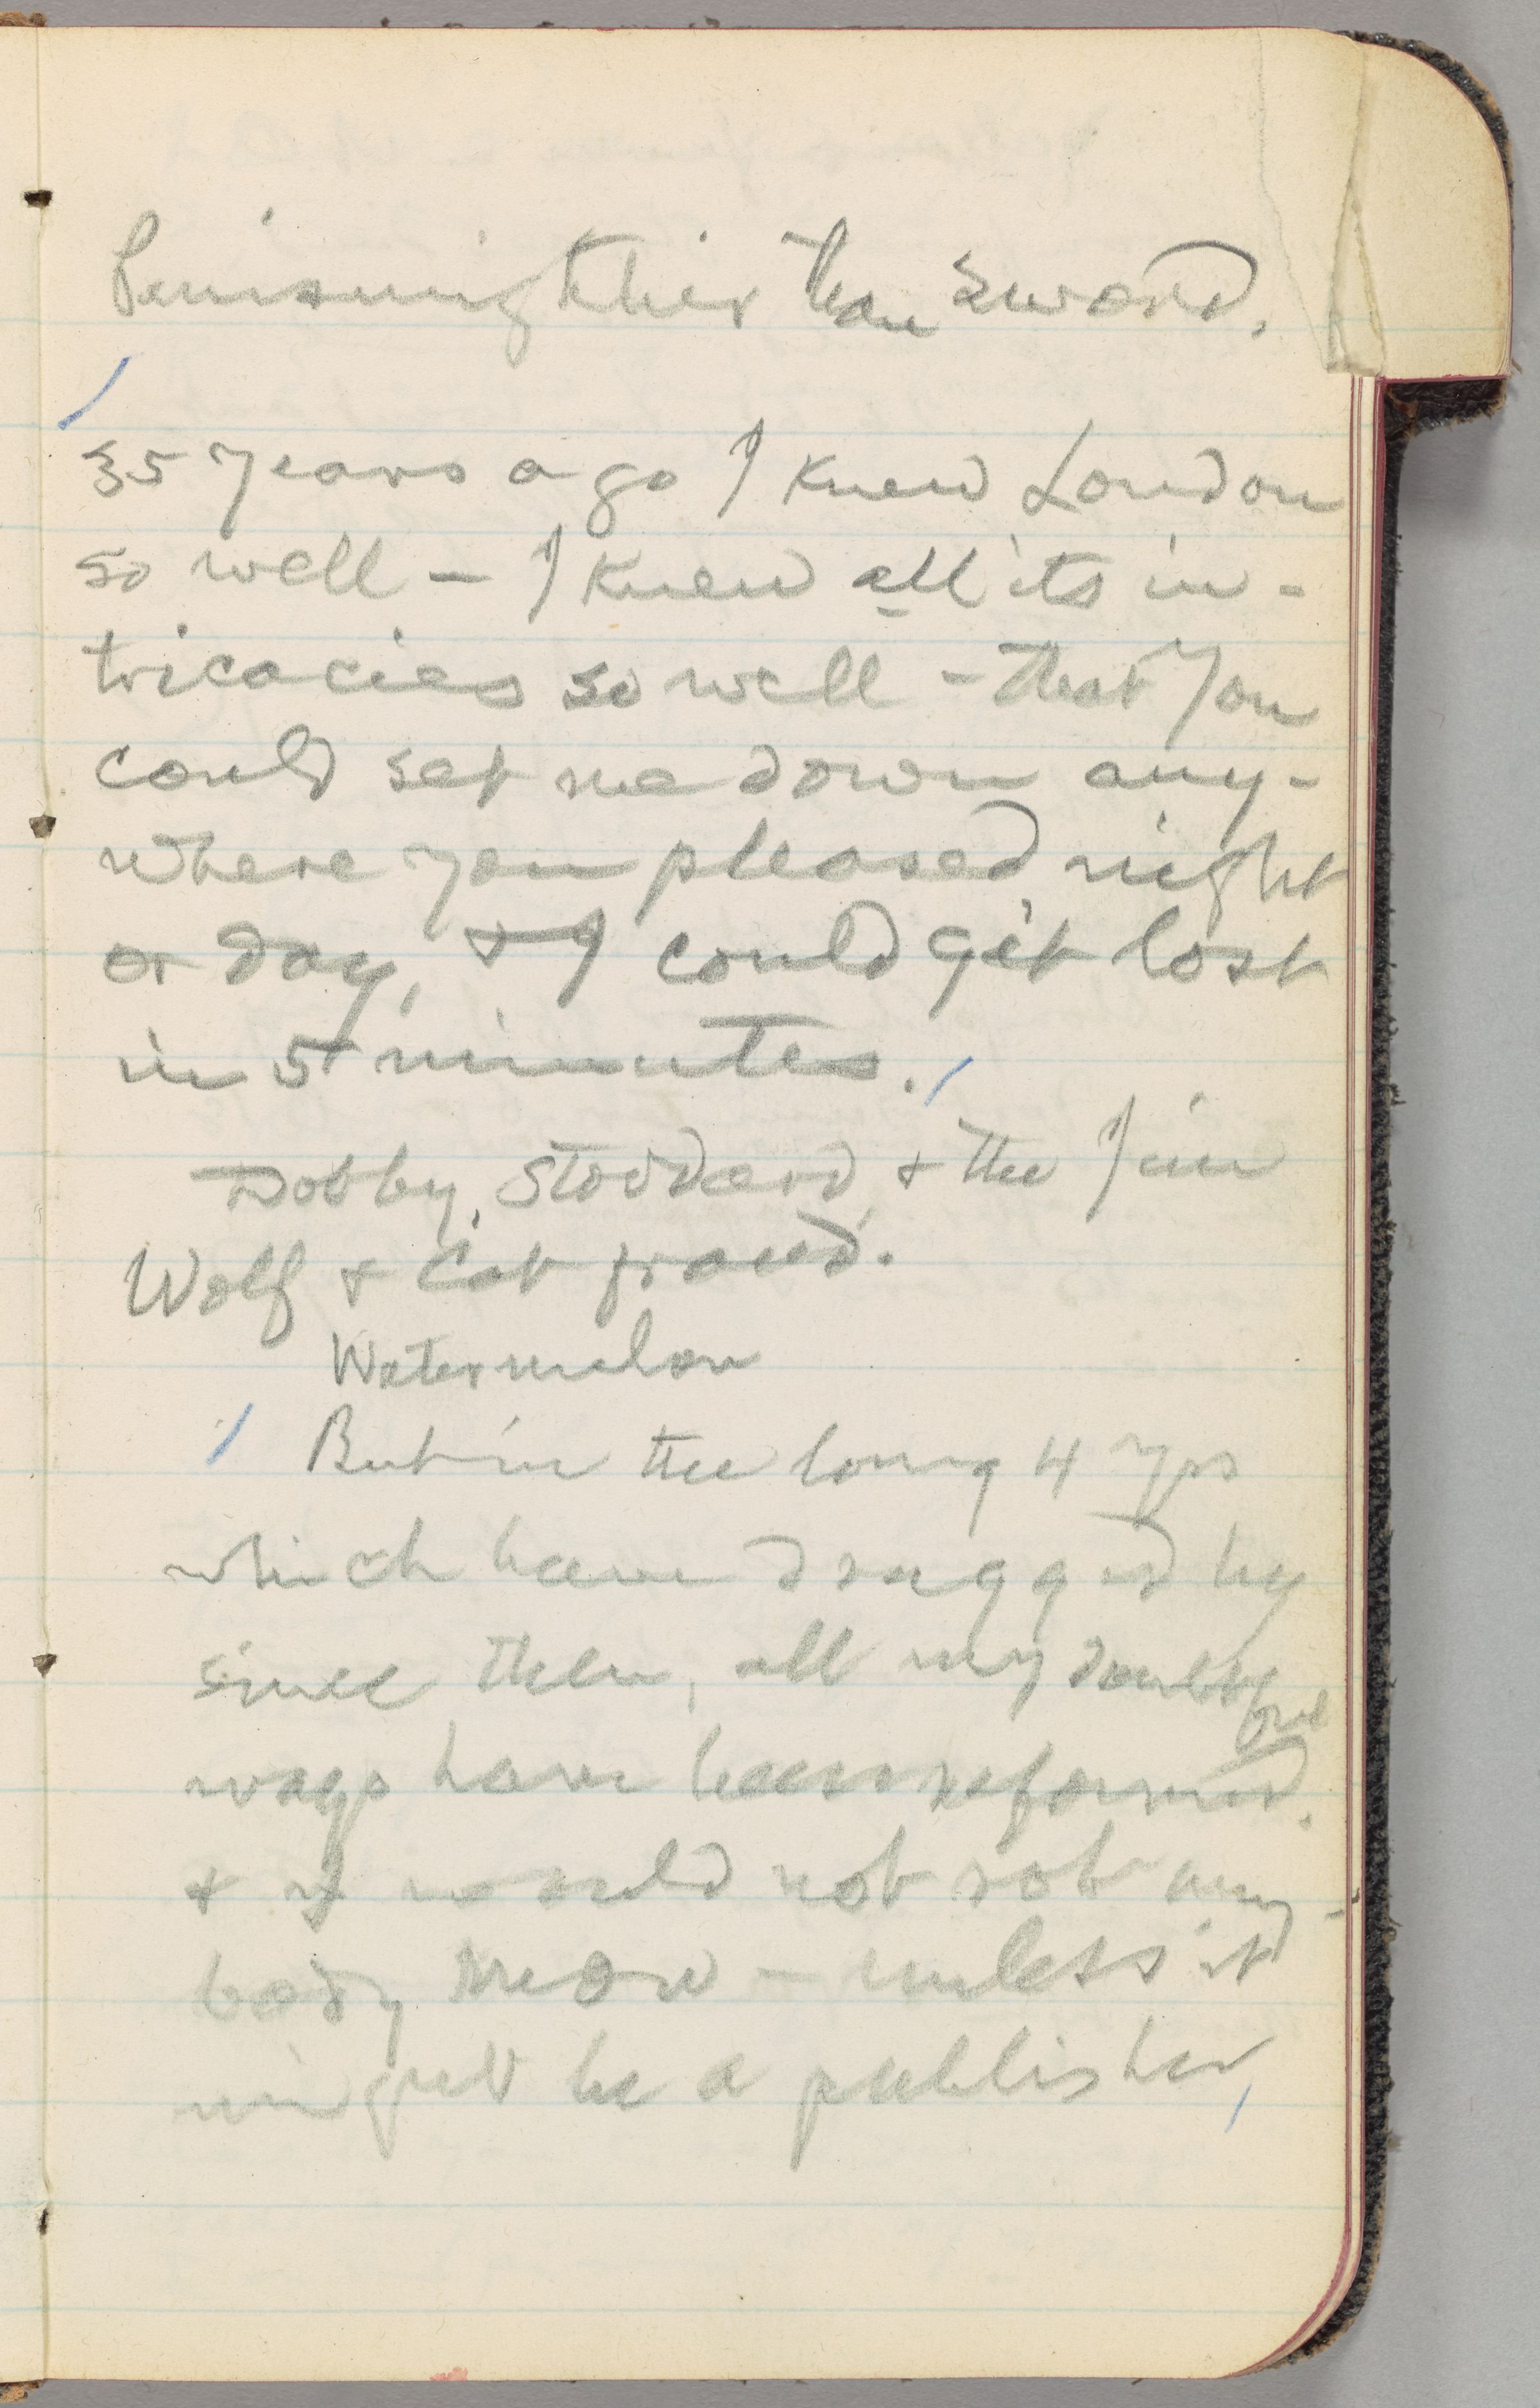 Pen is mightier than sword.
35 years ago I knew London
so well — I knew all its in-
tricacies so well — that you
could set me down any-
where you pleased night
or day, & I could get lost
in 5 minutes.
Dobby, Stoddard, & the Jim
Wolf & Cat fraud.
Watermelon
But in the long 4 yrs
which have dragged by
since then, all my doubtful
ways have been reformed.
& I would not rob any-
body now — unless it
might be a publisher,